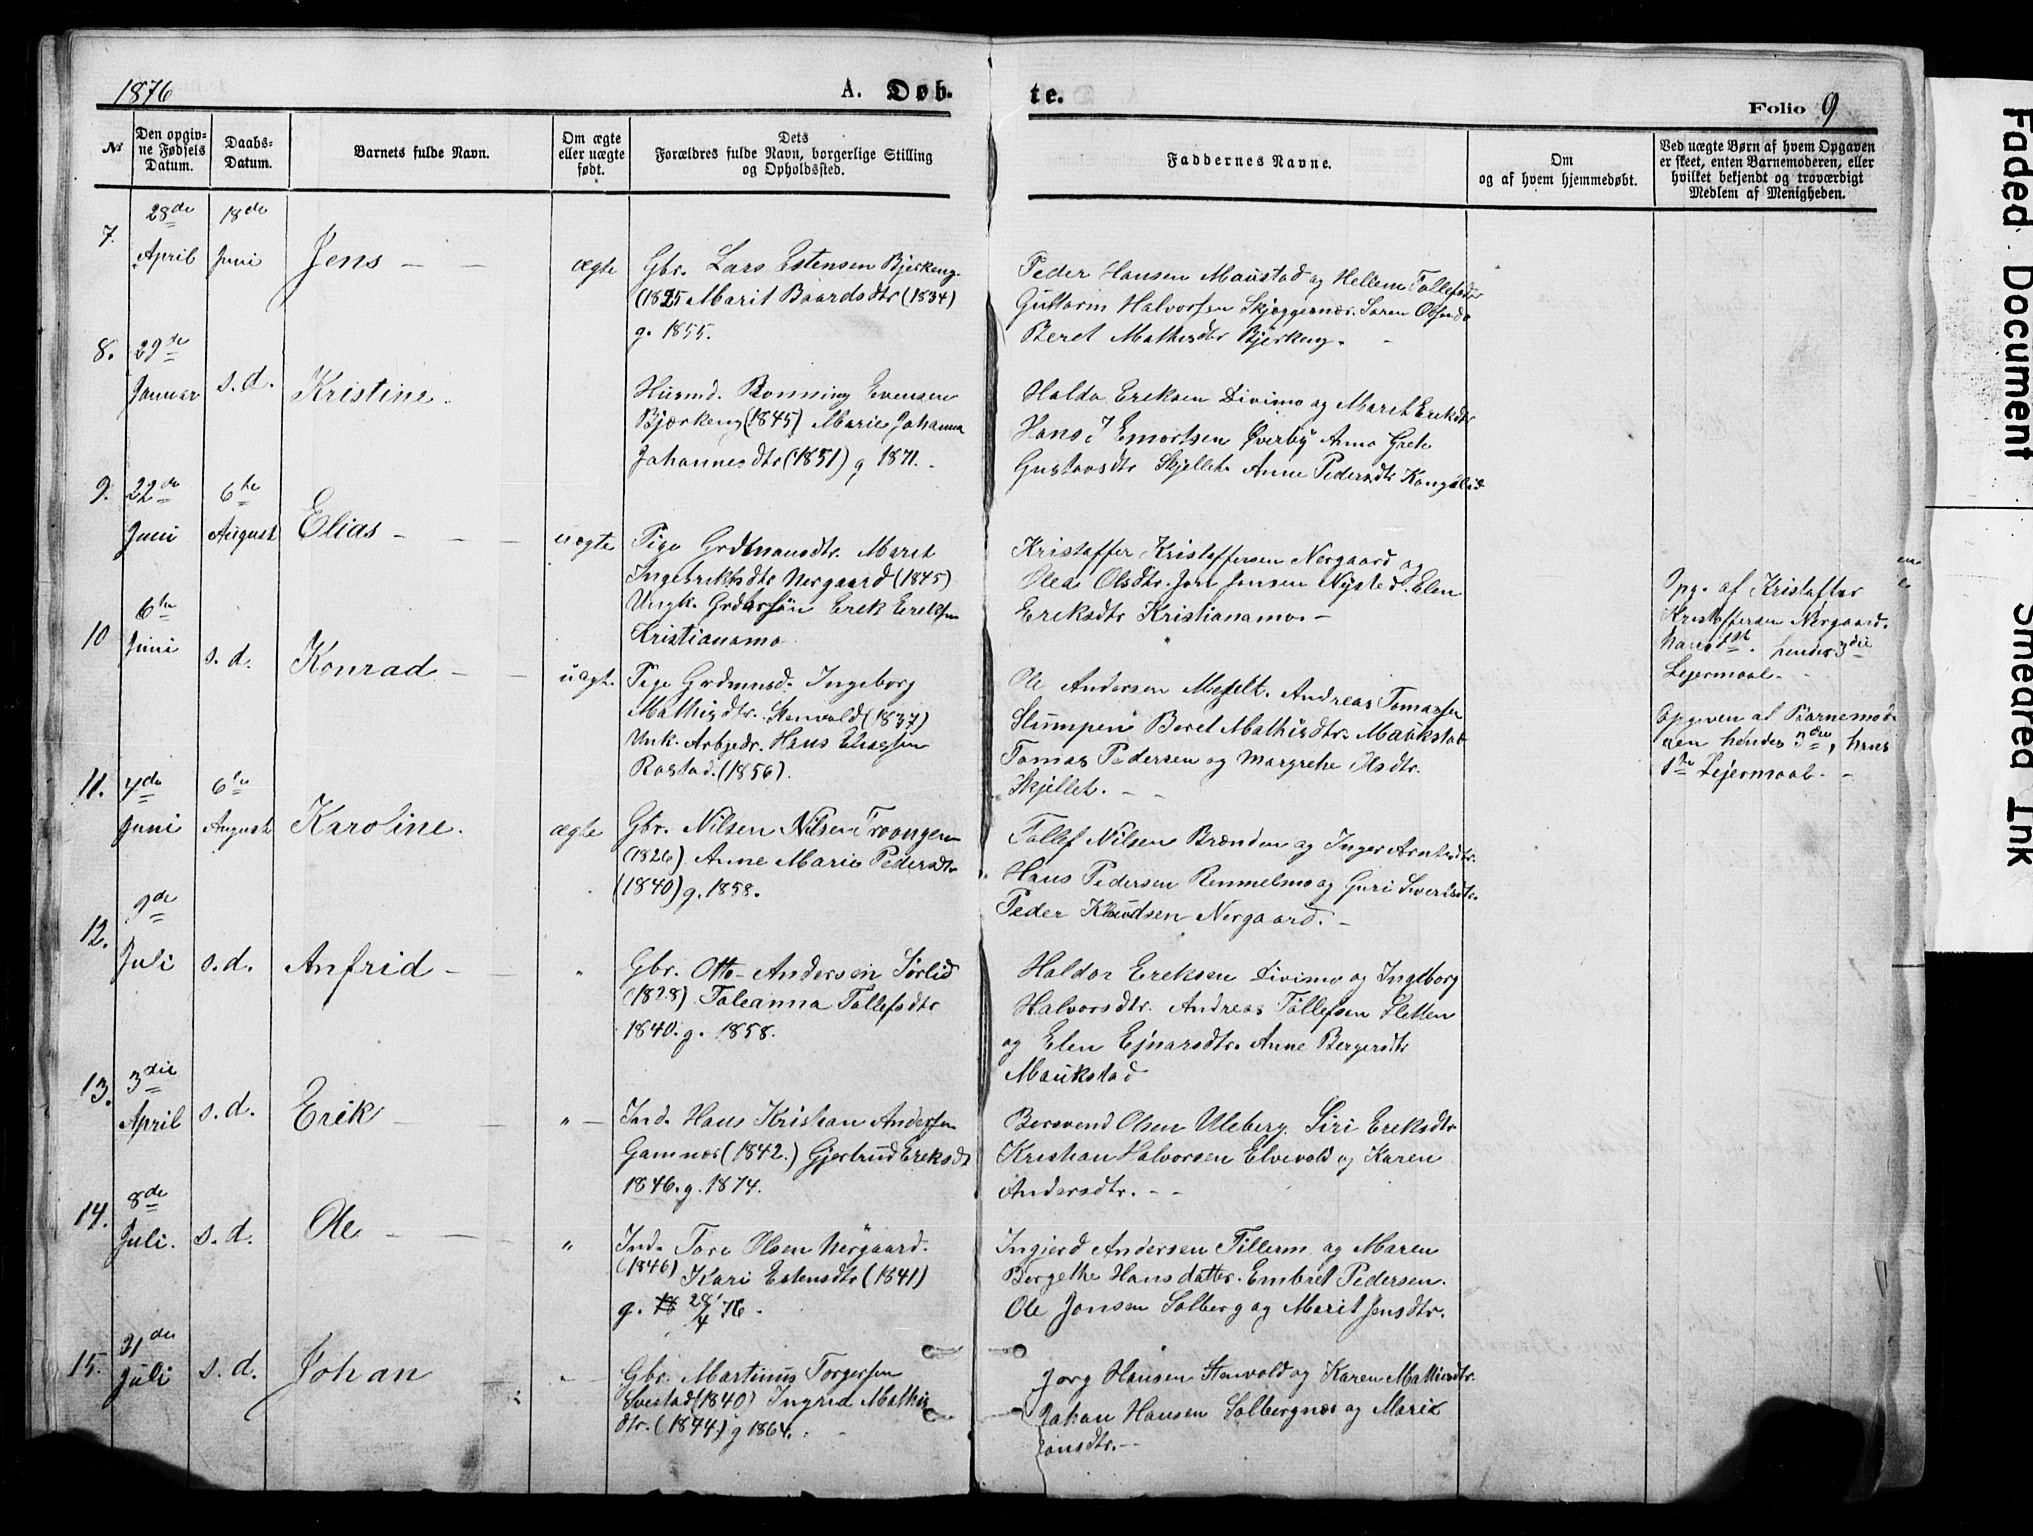 1876
A. Døb.
te.
Folio 9
No
Den opgiv-
ne Fødsels
Datum.
Daabs-
Datum.
Barnets fulde Navn.
Om ægte
eller uægte
født.
Dets
Forældres fulde Navn, borgerlige Stilling
og Opholdssted.
Faddernes Navne.
Om
og af hvem hjemmedøbt.
Ved uægte Børn af hvem Opgaven
er skeet, enten Barnemoderen, eller
hvilket bekjendt og troværdigt
Medlem af Menigheden.
7.
28de
April
18de
Juni
Jens
ægte
Gbr. Lars Estensen Bjerkeng
(1825 Marit Baardsdtr (1834)
g. 1855.
Peder Hansen Maustad og Hellem Tollefsdtr
Guttorm Halvorsen Skjæggesnæs. Søren
Beret Mathisdtr Bjerkeng.
8.
29de
Januar
s. d.
Kristine.
Husmd. Bonning Evensen
Bjærkeng (1845) Marie Johanna
Johannesdtr (1851) g 1871.
Haldo Eriksen Divimo og Maret Eriksdtr
Hans J Emortsen Øverby Anna Grete
Gustavsdtr Skjellet. Anne Pedersdtr Kongslid
9.
22de
Juni
6te
August
Elias
uægte
Pige Grdmansdtr. Maret
Ingebriktsdtr Nergaard (1845)
Ungk. Grdbrsøn Erek Ereksen
Kristianamo
Kristoffer Kristoffersen Nergaard og
Olea Olsdtr. Jon Jonsen Nysted. Elen
Ereksdtr Kristianamo. -
Opg. af Kristoffer
Kristoffersen Nergaard.
hans 1st. hendes 3die
Lejermaal.
10
6te
Juni
s. d.
Konrad
uægt.
Pige Grdmnsd. Ingeborg
Mathisdtr. Stenvold (1837)
Unk. Arbjedr. Hans Eliasen
Rostad. (1856).
Ole Andersen Moselt. Andreas Tomassen
Slumpen Beret Mathisdtr. Maukstad
Tomas Pedersen og Margrethe Olsdtr.
Skjellet. - -
Opgeven af Barnemod-
eren hendes 3die, hans
1ste Lejermaal. -
11.
4de
Juni
6te
August
Karoline.
ægte
Gbr. Nilsen Nilsen Frovangen
(1826). Anne Marie Pedersdtr
(1840) g. 1858.
Tollef Nilsen Brænden og Inger Arntsdtr.
Hans Pedersen Remmelmo og Guri Sivertsdtr.
Peder Knudsen Nergaard. -
12.
9de
Juli
s. d.
Anfrid
"
Gbr. Otto Andersen Sørlid
(1828). Taleanna Tollefsdtr
1840. g. 1858.
Haldor Ereksen Divimo og Ingeborg
Halvorsdtr. Andreas Tollefsen Sletten
og Elen Ejnarsdtr. Anne Bergersdtr
Maukstad
13.
3die
April
s. d.
Erik
"
Ind. Hans Kristian Andersen
Gamnes (1842.) Gjertrud Ereksdt
1846. g. 1874.
Bersvend Olsen Uleberg. Siri Ereksdtr
Kristian Halvorsen Elvevold og Karen
Andersdtr. - -
14.
8de
Juli.
s. d.
Ole
"
Ind. Tore Olsen Nergaard.
(1846) Kari Estensdtr (1841)
g. 18 28/4 76.
Ingjerd Andersen Fillerm og Maren
Bergethe Hansdatter. Embret Pedersen.
Ole Jonsen Solberg og Marit Jensdtr.
15.
31de
Juli
s. d.
Johan
"
Gbr. Martinus Torgersen
Svestad (1840) Ingrid Mathis
dtr. (1844) g 1864.
Jorg Hansen Stenvold og Karen Mathisdtr.
Johan Hansen Solbergnes og Marit
Jonsdtr. -
Faded Document
Smeared Ink